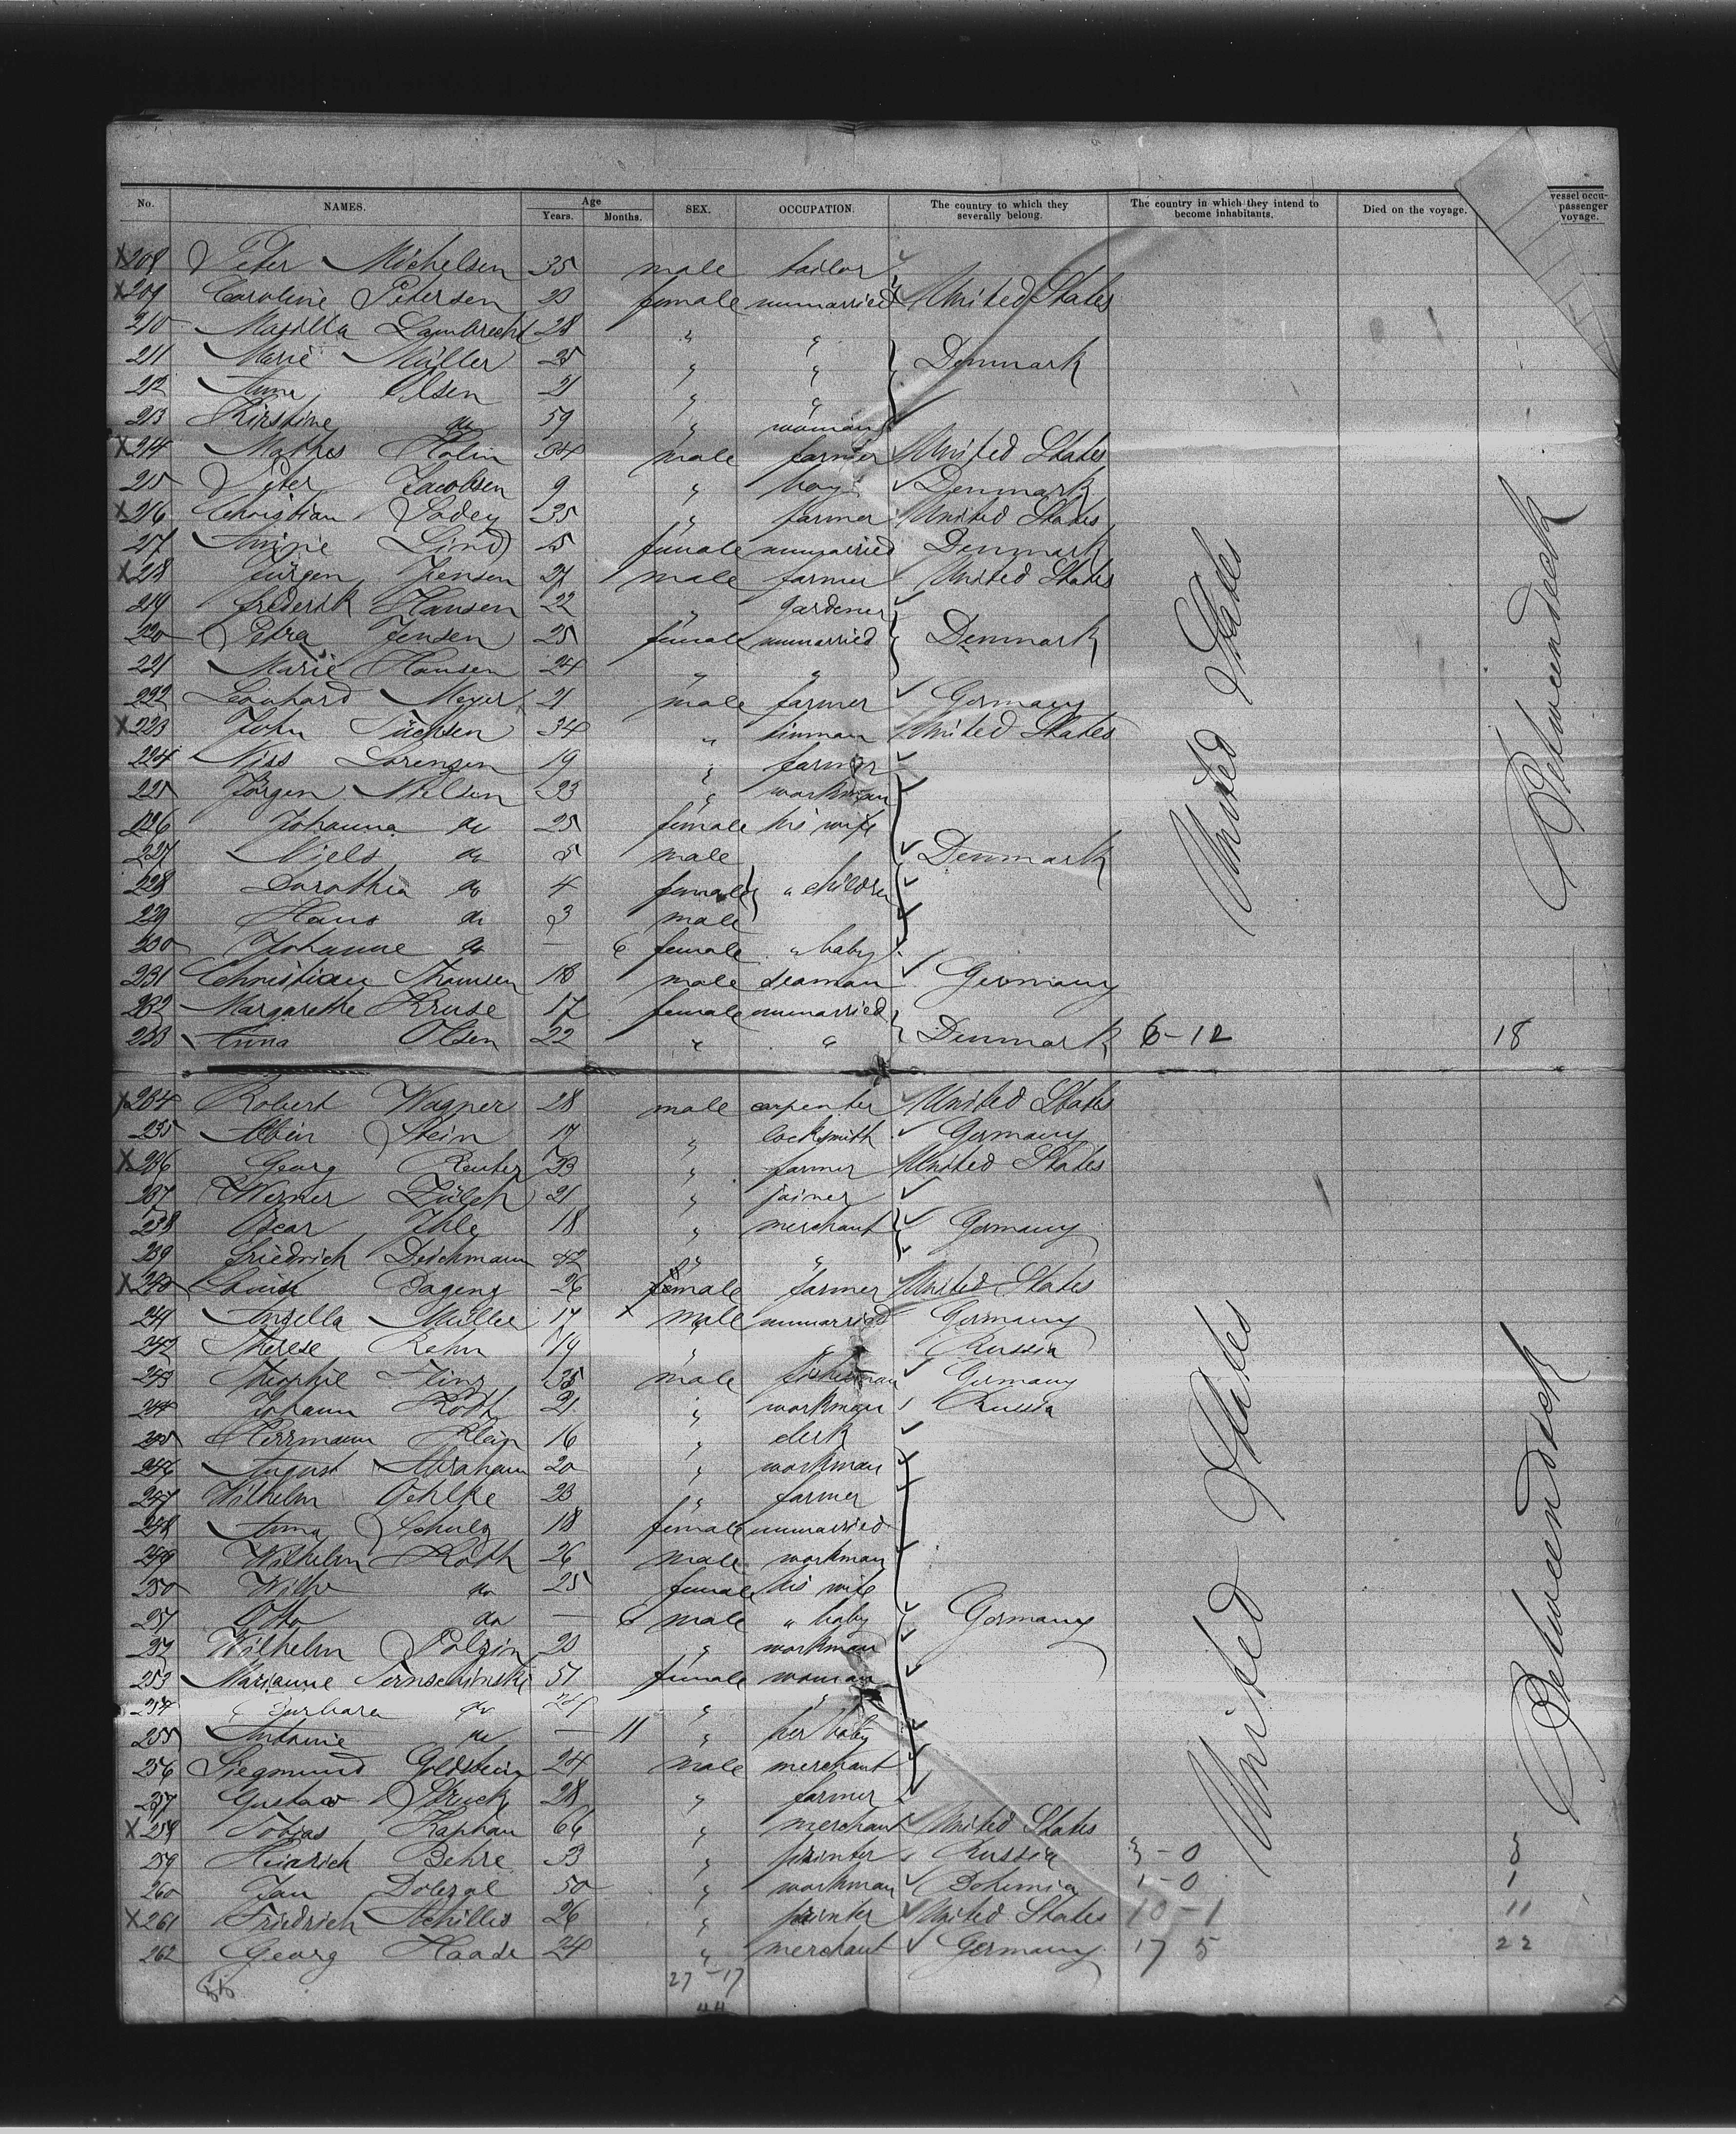 No. NAMES. Age Years. Months. SEX. OCCUPATION. The country to which they severally belong. The country in which they intend to become inhabitants. Died on the voyage. vessel occu- passenger voyage.
X 208 Peter Michelsen 35 male tailor
X 209 Caroline Petersen 23 female unmarried United States
210 Lambrecht 28 " "
211 Marie Müller 25 " " Denmark
212 Anna Olsen 21 " "
213 Kirstine do 59 " woman
X 214 Mathes Holm 34 male farmer United States
215 Peter Jacobsen 9 " boy Denmark
X 216 Christian 35 " farmer United States
217 Annie Lind female unmarried Denmark
X 218 Jürgen Jensen 27 male farmer United States
219 Frederik Hansen 22 " gardener
220 Petra Jensen 25 female unmarried Denmark
221 Marie Hansen 24 " "
222 Leonhard Meyer 21 male farmer Germany
X 223 John Tüchsen 34 " tinman United States
224 Niss Lorensen 19 " farmer
225 Jörgen Nielsen 33 " workman
226 Johanna do 25 female his wife
227 Niels do 5 male Denmark
228 Dorothea do 4 female " children
229 Hans do 3 male
230 Johanne do — 6 female " baby
231 Christian Thomsen 18 male seaman Germany
232 Margarethe Kruse 17 female unmarried
233 Anna Olsen 22 " " Denmark 6-12 18
United States
Betweendeck
X 234 Robert Wagner 28 male carpenter United States
235 Albin Stein 17 " locksmith Germany
X 236 Georg Reuter 33 " farmer United States
237 Werner Zülch 21 " joiner
238 Oscar Ihle 18 " merchant Germany
239 Friedrich Deichmann 42 " "
X 240 Louise 26 female farmer United States
241 Müller 17 male unmarried Germany
242 Therese Rahn 19 " " Russia
243 Theophil 35 male fisherman Germany
244 Johann Roth 21 " workman Russia
245 Herrmann Klein 16 " clerk
246 August Abraham 20 " workman
247 Wilhelm Oehlke 23 " farmer
248 Anna Schulz 18 female unmarried
249 Wilhelm Roth 26 male workman
250 do 25 female his wife
251 Otto do — 6 male " baby Germany
252 Wilhelm Polzin 23 " workman
253 Marianne 51 female woman
254 Barbara do " "
255 Antonie do — 11 " her baby
256 Siegmund Goldstein 24 male merchant
257 Gustav Struck 28 " farmer
X 258 Tobias Kaphan 66 " merchant United States
259 Heinrich Behre 33 " printer Russia 3-0 3
260 Jan Dolezal 50 " workman Bohemia 1-0 1
X 261 Friedrich Achilles 26 " printer United States 10-1 11
262 Georg Haade 24 " merchant Germany 17 5 22
United States
Betweendeck
27-17
44